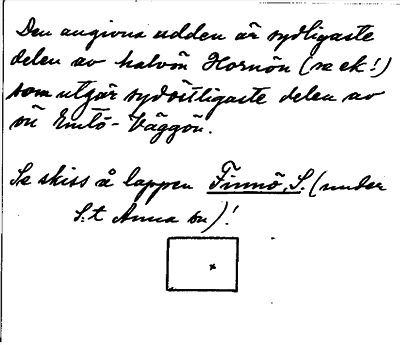 Den angivna udden är sydligaste
delen av halvön Hornön (se ek!)
som utgör sydöstligaste delen av
ön Emtö-Väggön.
Se skiss å lappen Finnö, S. (under
S:t Anna sn)!